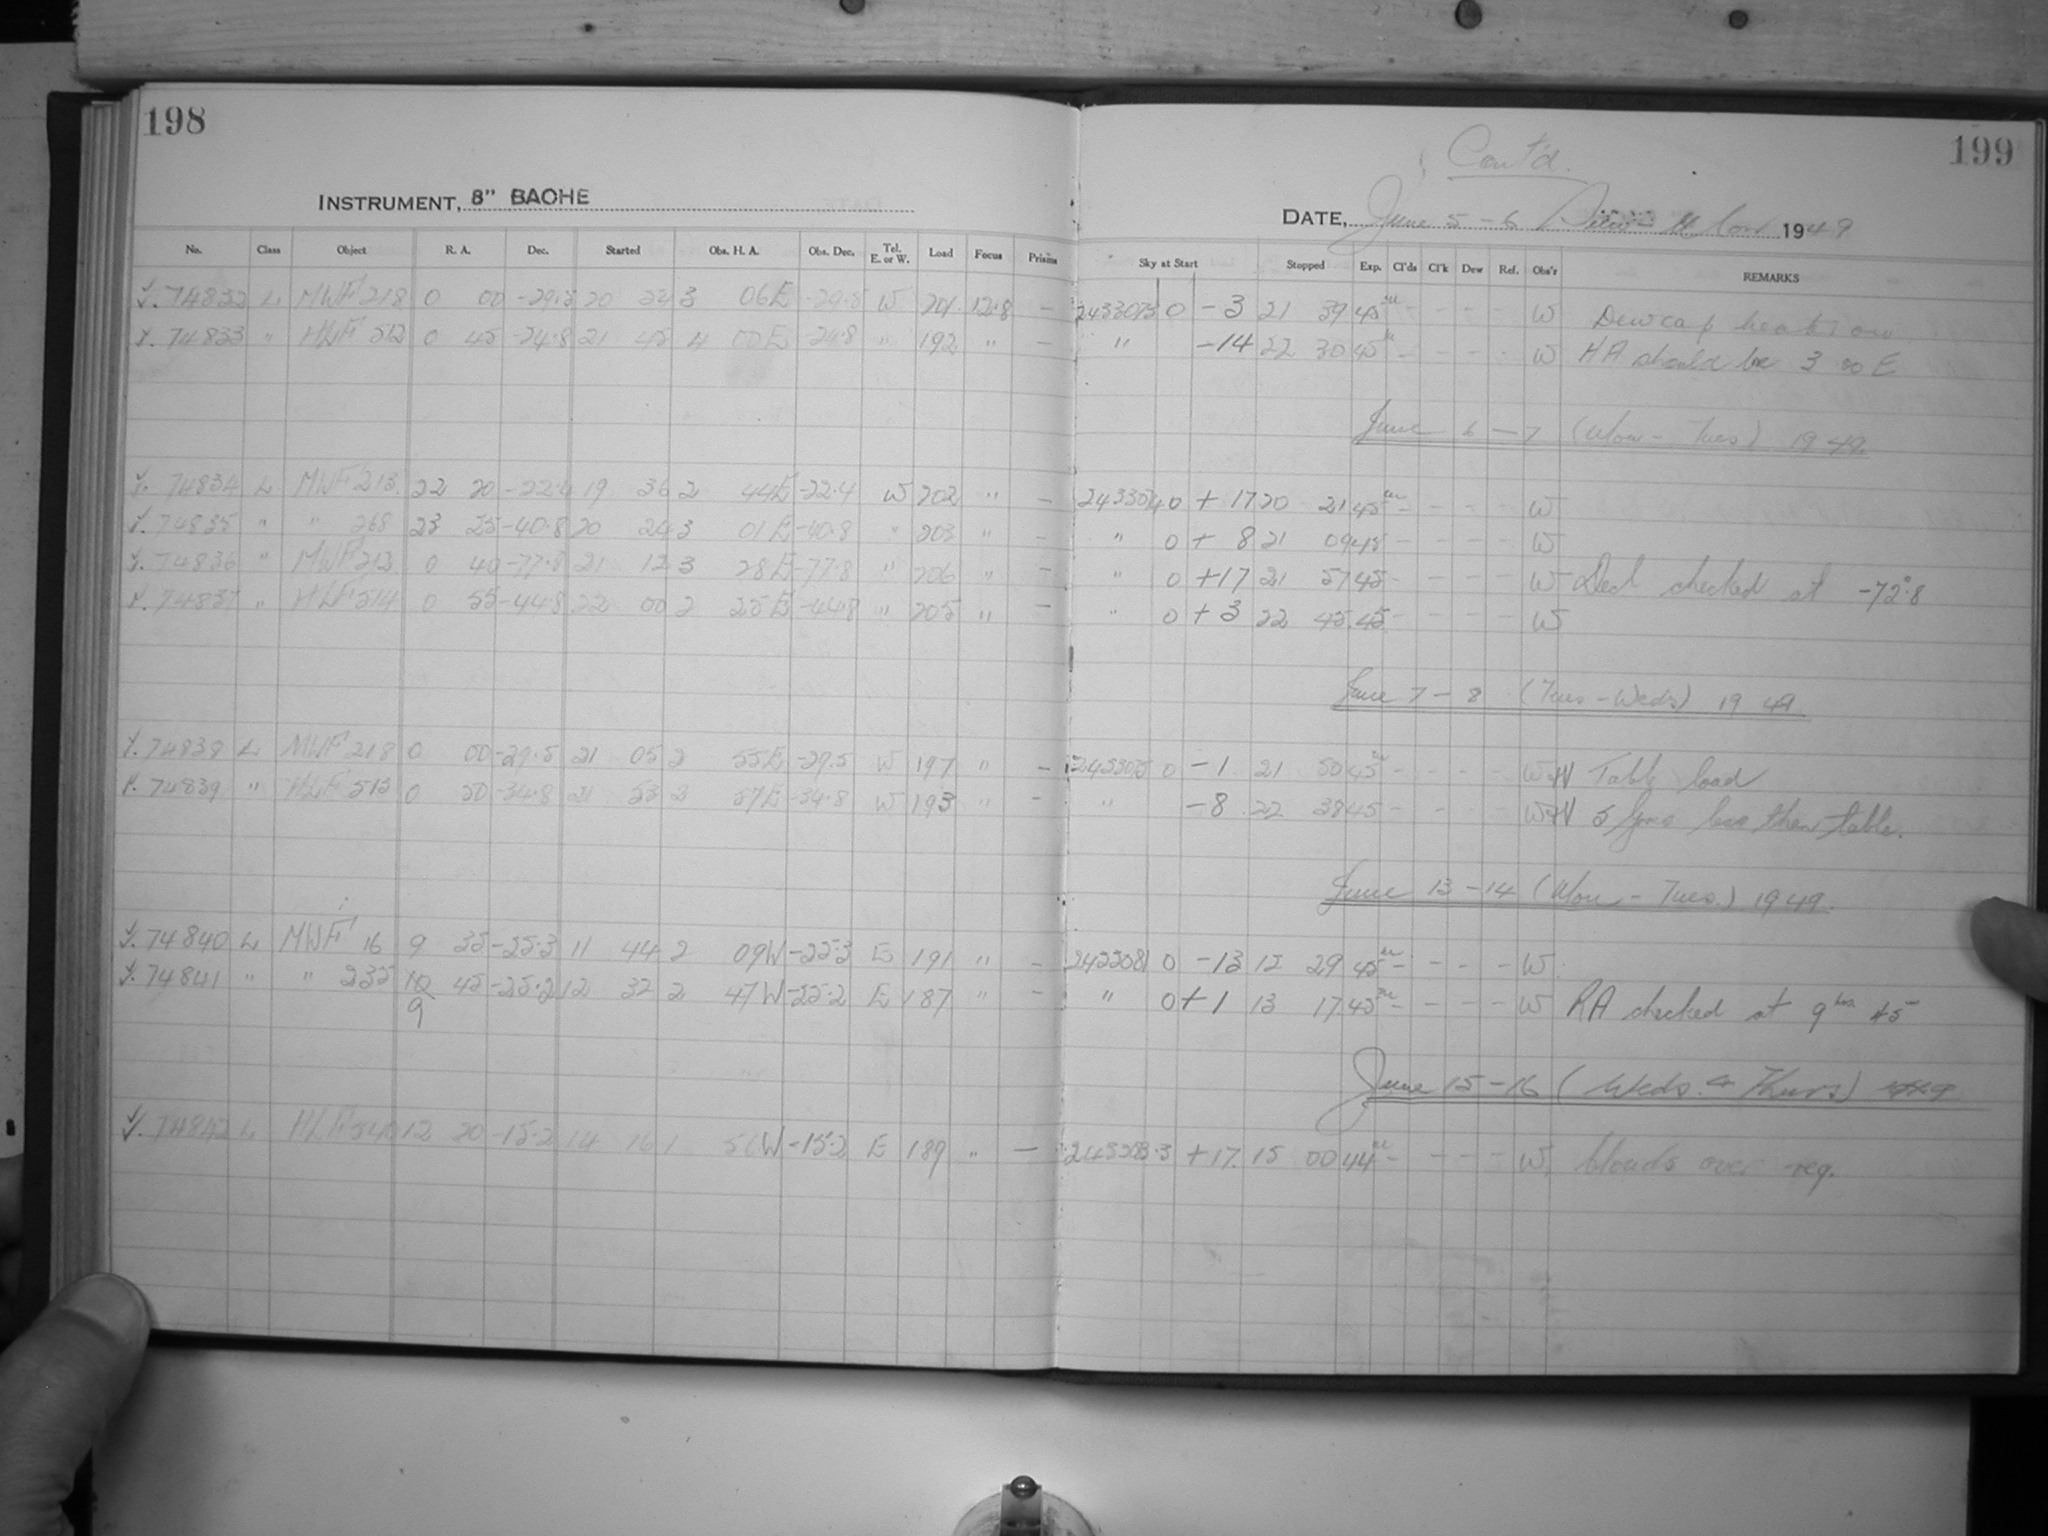 198
199
Cont'd.
INSTRUMENT, 8" BACHE
DATE, June 5-6 1949
No. Class Object R. A. Dec. Started Obs. H. A. Obs. Dec. Tel. E. or W. Load Focus Prisms Sky at Start Stopped Exp. Cl'ds Cl'k Dew Ref. Obs'r REMARKS
74832 L MWF 218 0 00 -29.5 20 54 3 06E -29.5 W 201 12.8 - 2433073 0 -3 21 39 45 - - - - W Dewcap heat on
74833 " HLF 512 0 45 -24.8 21 45 4 00E -24.8 " 192 " - " -14 22 30 45 - - - - W HA should be 3 00 E
June 6-7 (Mon - Tues) 1949.
74834 L MWF 213 22 20 -22.4 19 36 2 44E -22.4 W 202 " - 2433074 0 +17 20 21 45 - - - - W
74835 " " 268 23 25 -40.8 20 24 3 01E -40.8 " 203 " - " 0 + 8 21 09 45 - - - - W
74836 " MWF 212 0 40 -77.8 21 12 3 28E -77.8 " 206 " - " 0 +17 21 57 45 - - - - W Decl checked at -72°.8
74837 " HLF 514 0 55 -44.8 22 00 2 25E -44.8 " 205 " - " 0 +3 22 45 45 - - - - W
June 7-8 (Tues - Weds) 1949
74838 L MWF 218 0 00 -29.5 21 05 2 55E -29.5 W 197 " - 2433075 0 -1 21 50 45 - - - - Table load
74839 " HLF 513 0 50 -34.8 21 53 2 57E -34.8 W 193 " - " -8 22 38 45 - - - - 5 gms less then table.
June 13-14 (Mon - Tues.) 1949.
74840 L MWF 16 9 35 -25.3 11 44 2 09W -25.3 E 191 " - 2433081 0 -13 12 29 45 - - - - W
74841 " " 235 10 45 -25.2 12 32 2 47W -25.2 E 187 " - " 0 +1 13 17 45 - - - - W RA checked at 9 hrs 45
9
June 15-16 (Weds. - Thurs) 1949
74842 L HLF 12 20 -15.2 14 16 1 56W -15.2 E 189 " - 2433083.3 +17 15 00 44 - - - - W clouds over reg.